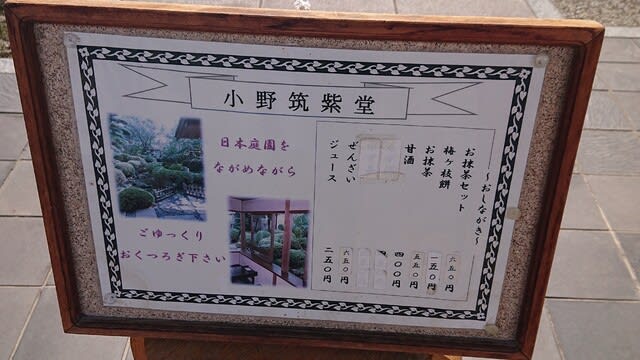 小野筑紫堂
日本庭園を
ながめながら
ごゆっくり
おくつろぎ下さい
〜おしながき〜
お抹茶セット 六五〇円
梅ヶ枝餅 一五〇円
お抹茶 五五〇円
甘酒 四〇〇円
ぜんざい 六五〇円
ジュース 二五〇円